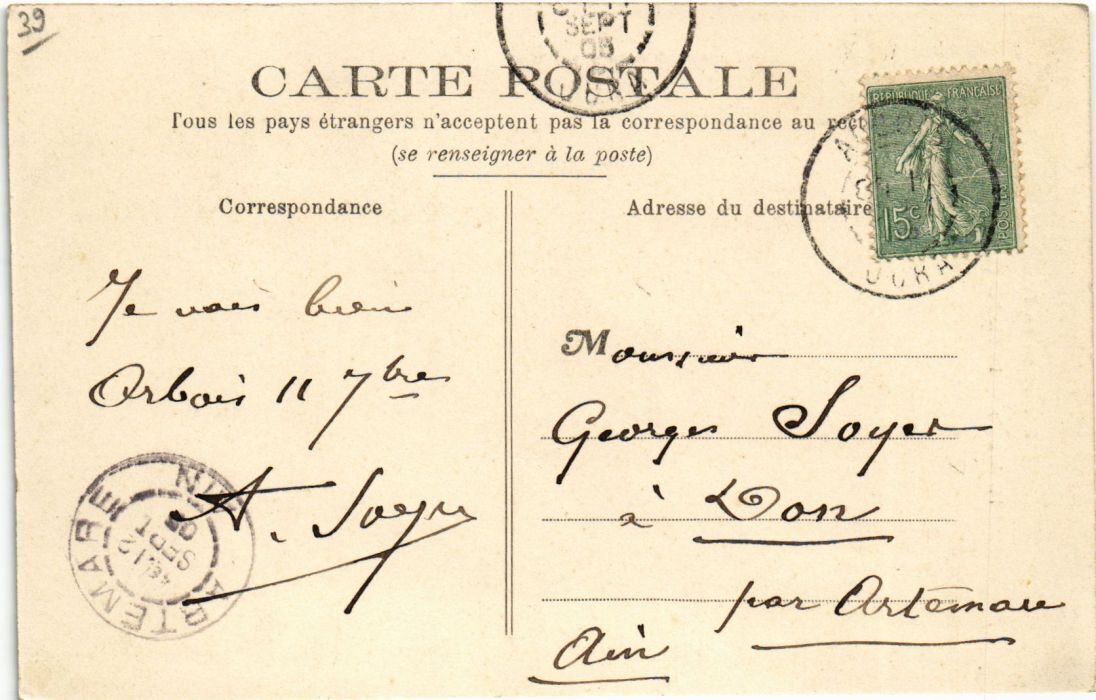 39
SEPT
05
JURA
CARTE POSTALE
Tous les pays étrangers n'acceptent pas la correspondance au recto
(se renseigner à la poste)
Correspondance
Adresse du destinataire
RÉPUBLIQUE FRANÇAISE
15c
POSTES
JURA
Je vais bien
Arbois 11 7bre
A. Soyer
Monsieur
Georges Soyer
à Don
par Artemare
Ain
ARTEMARE
AIN
12
SEPT
05